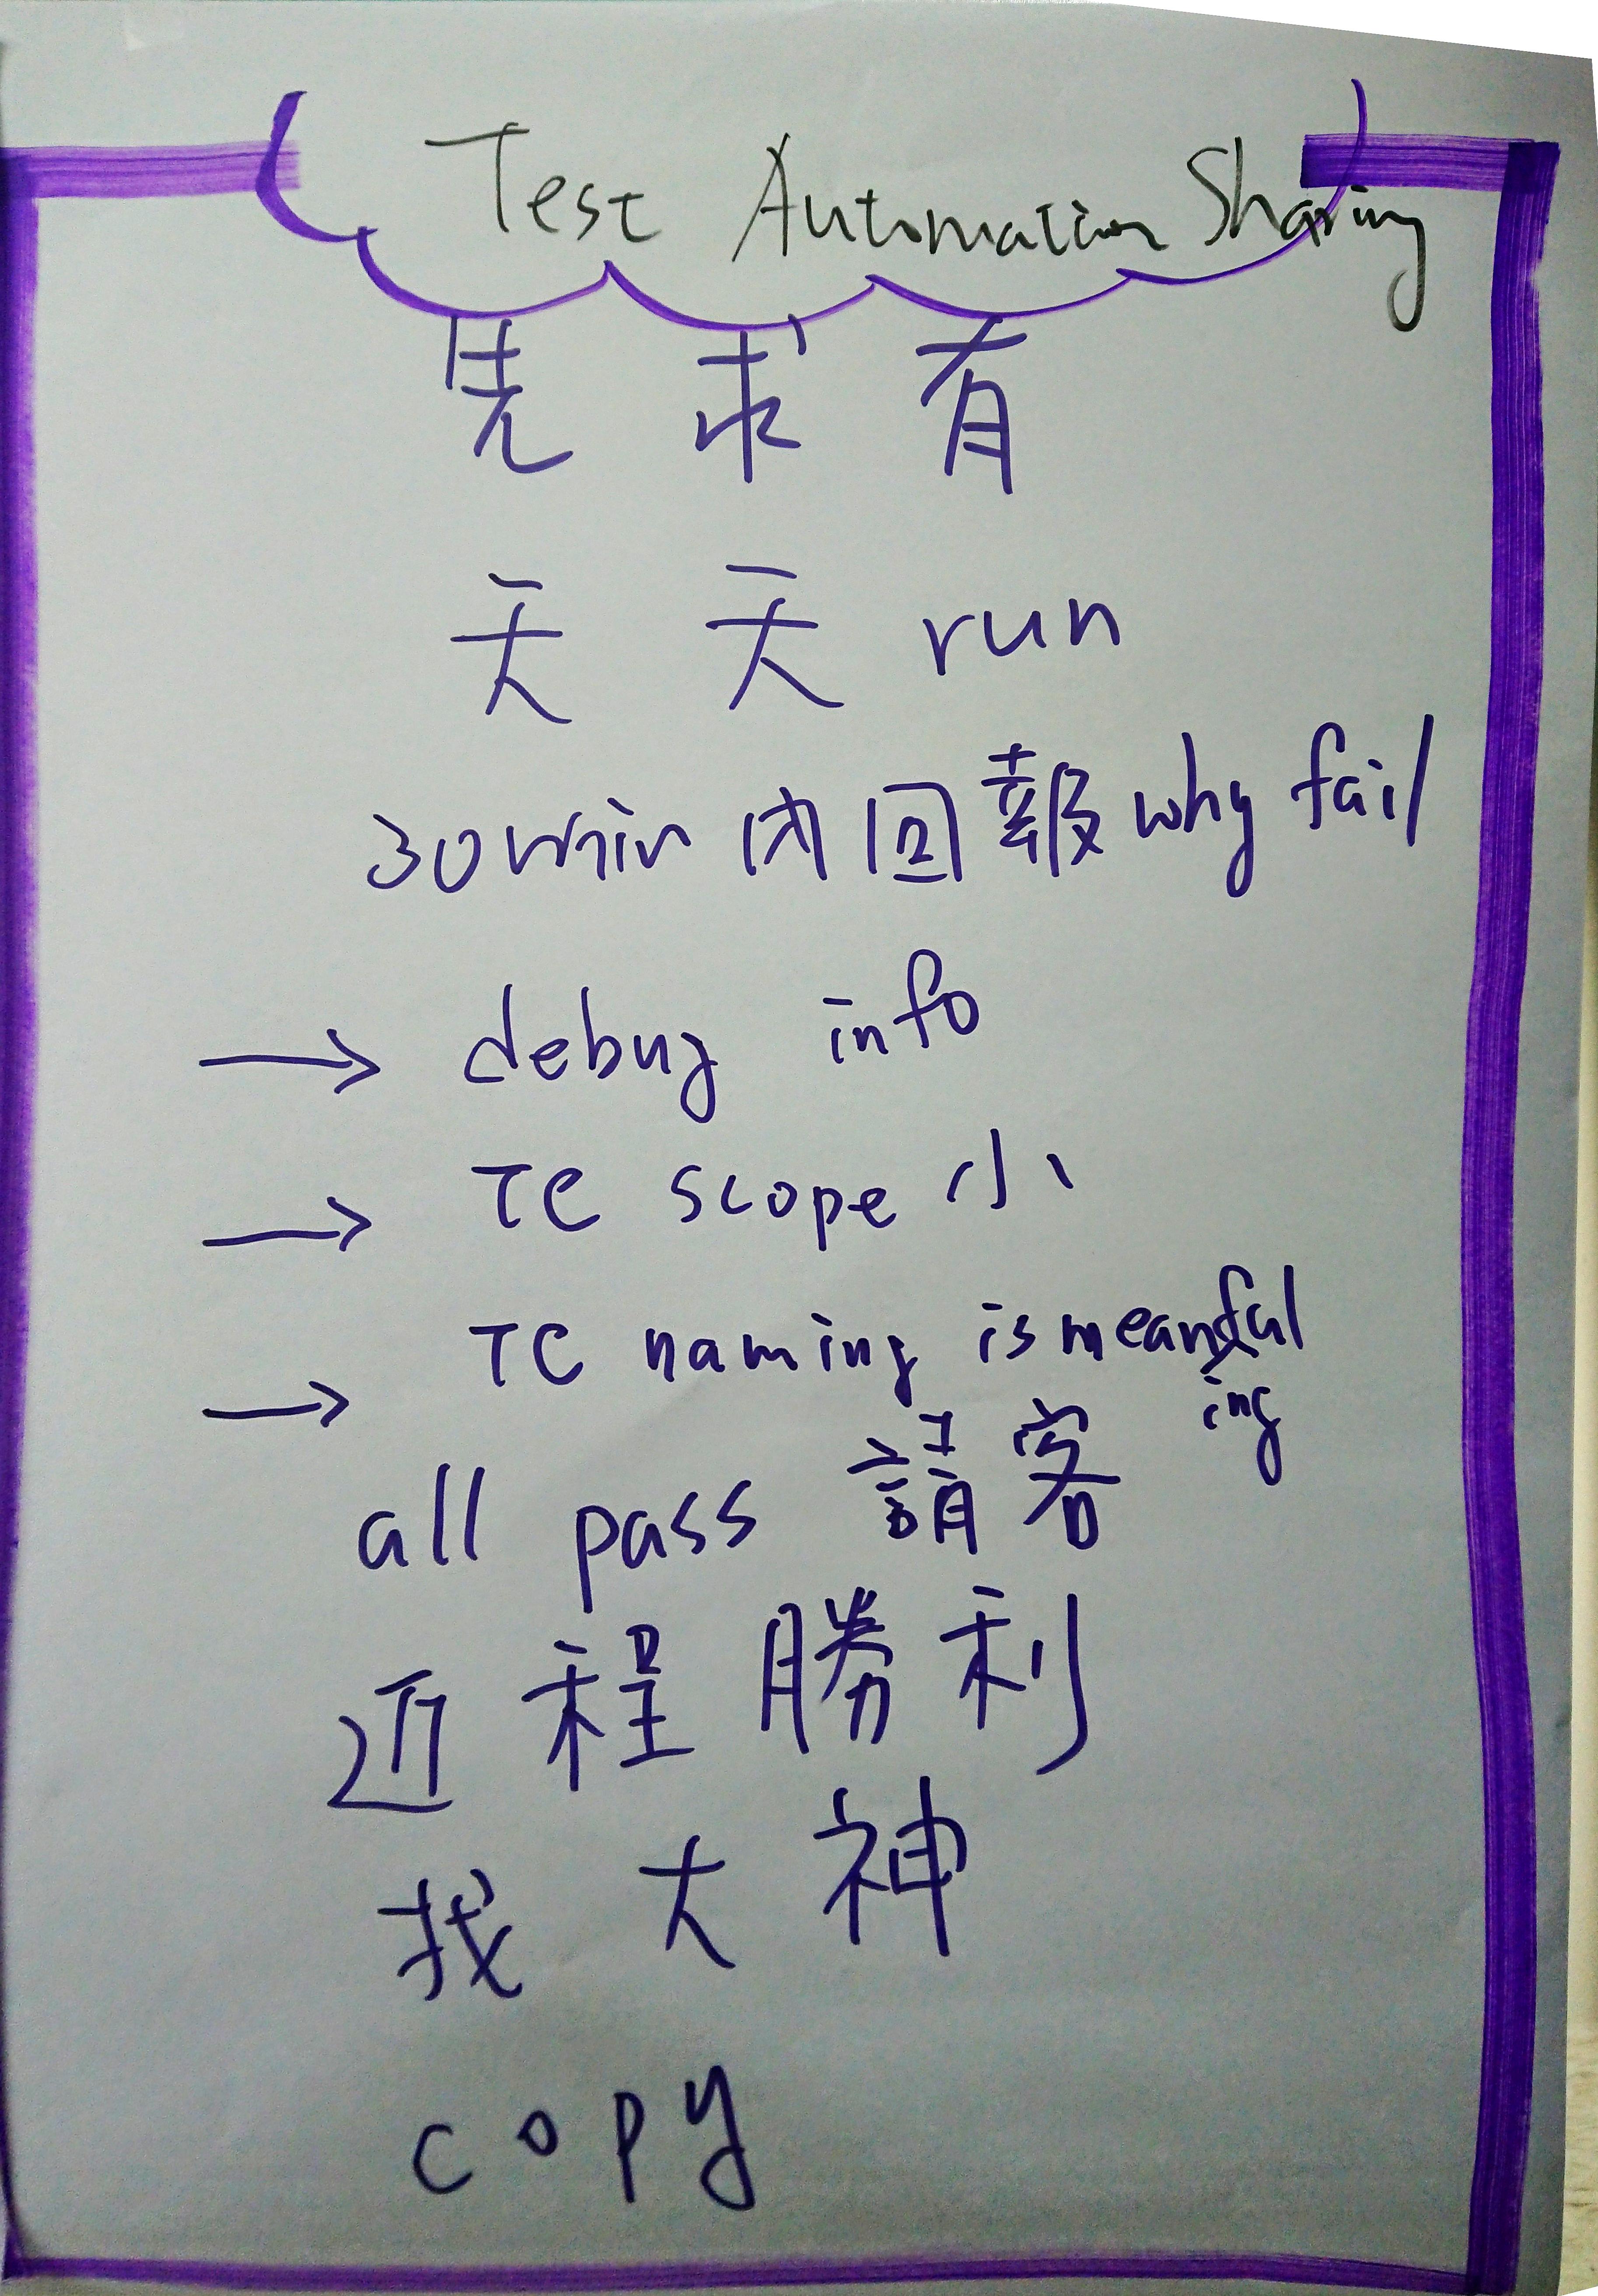 Test Automation Sharing
先求有
天天 run
30 min 內回報 why fail
→ debug info
→ TC scope 小
→ TC naming is meaningful
all pass 請客
近程勝利
找大神
copy